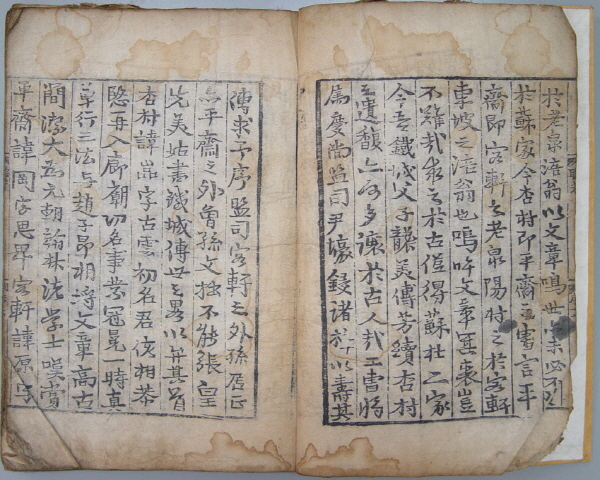 於老泉涪翁以文章鳴世未必不
於蘇家今杏村即平齋之害言平
齋即容軒之老泉陽村之於容軒
東坡之涪翁也嗚呼文章箕裘豈
不難哉求之於古僅得蘇杜二家
今吾鐵城父子聯美傳芳續杏村
之遺馥亦何多讓於古人哉工書將
爲慶尚監司尹壕鋟諸梓以壽其
傳求予序監司容軒之外孫居正
亦平齋之外曾孫文拙不能張皇
先美姑書鐵城傳世之畧以弁其首
杏村諱嵒字古雲初名君侅相恭
愍再入廊廟功名事業冠冕一時真
草行三法与趙子昻相溥文章高古
簡潔大爲元朝翰林法學士嘆賞
平齋諱岡字思卑容軒諱原字